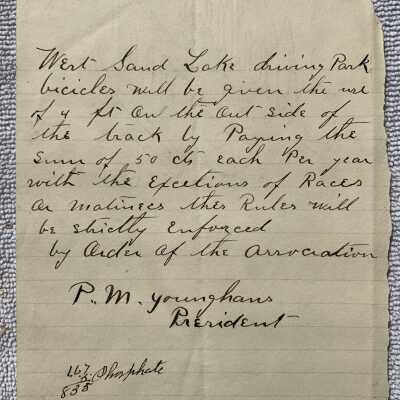 West Sand Lake driving Park
bicicles will be given the use
of 4 ft on the out side of
the track by Paying the
Sum of 50 cts each Per year
with the Excetions of Races
or matinees thes Rules will
be strictly Enforced
by Order of the association
P. M. Younghans
President
167
5
835
Phosphate